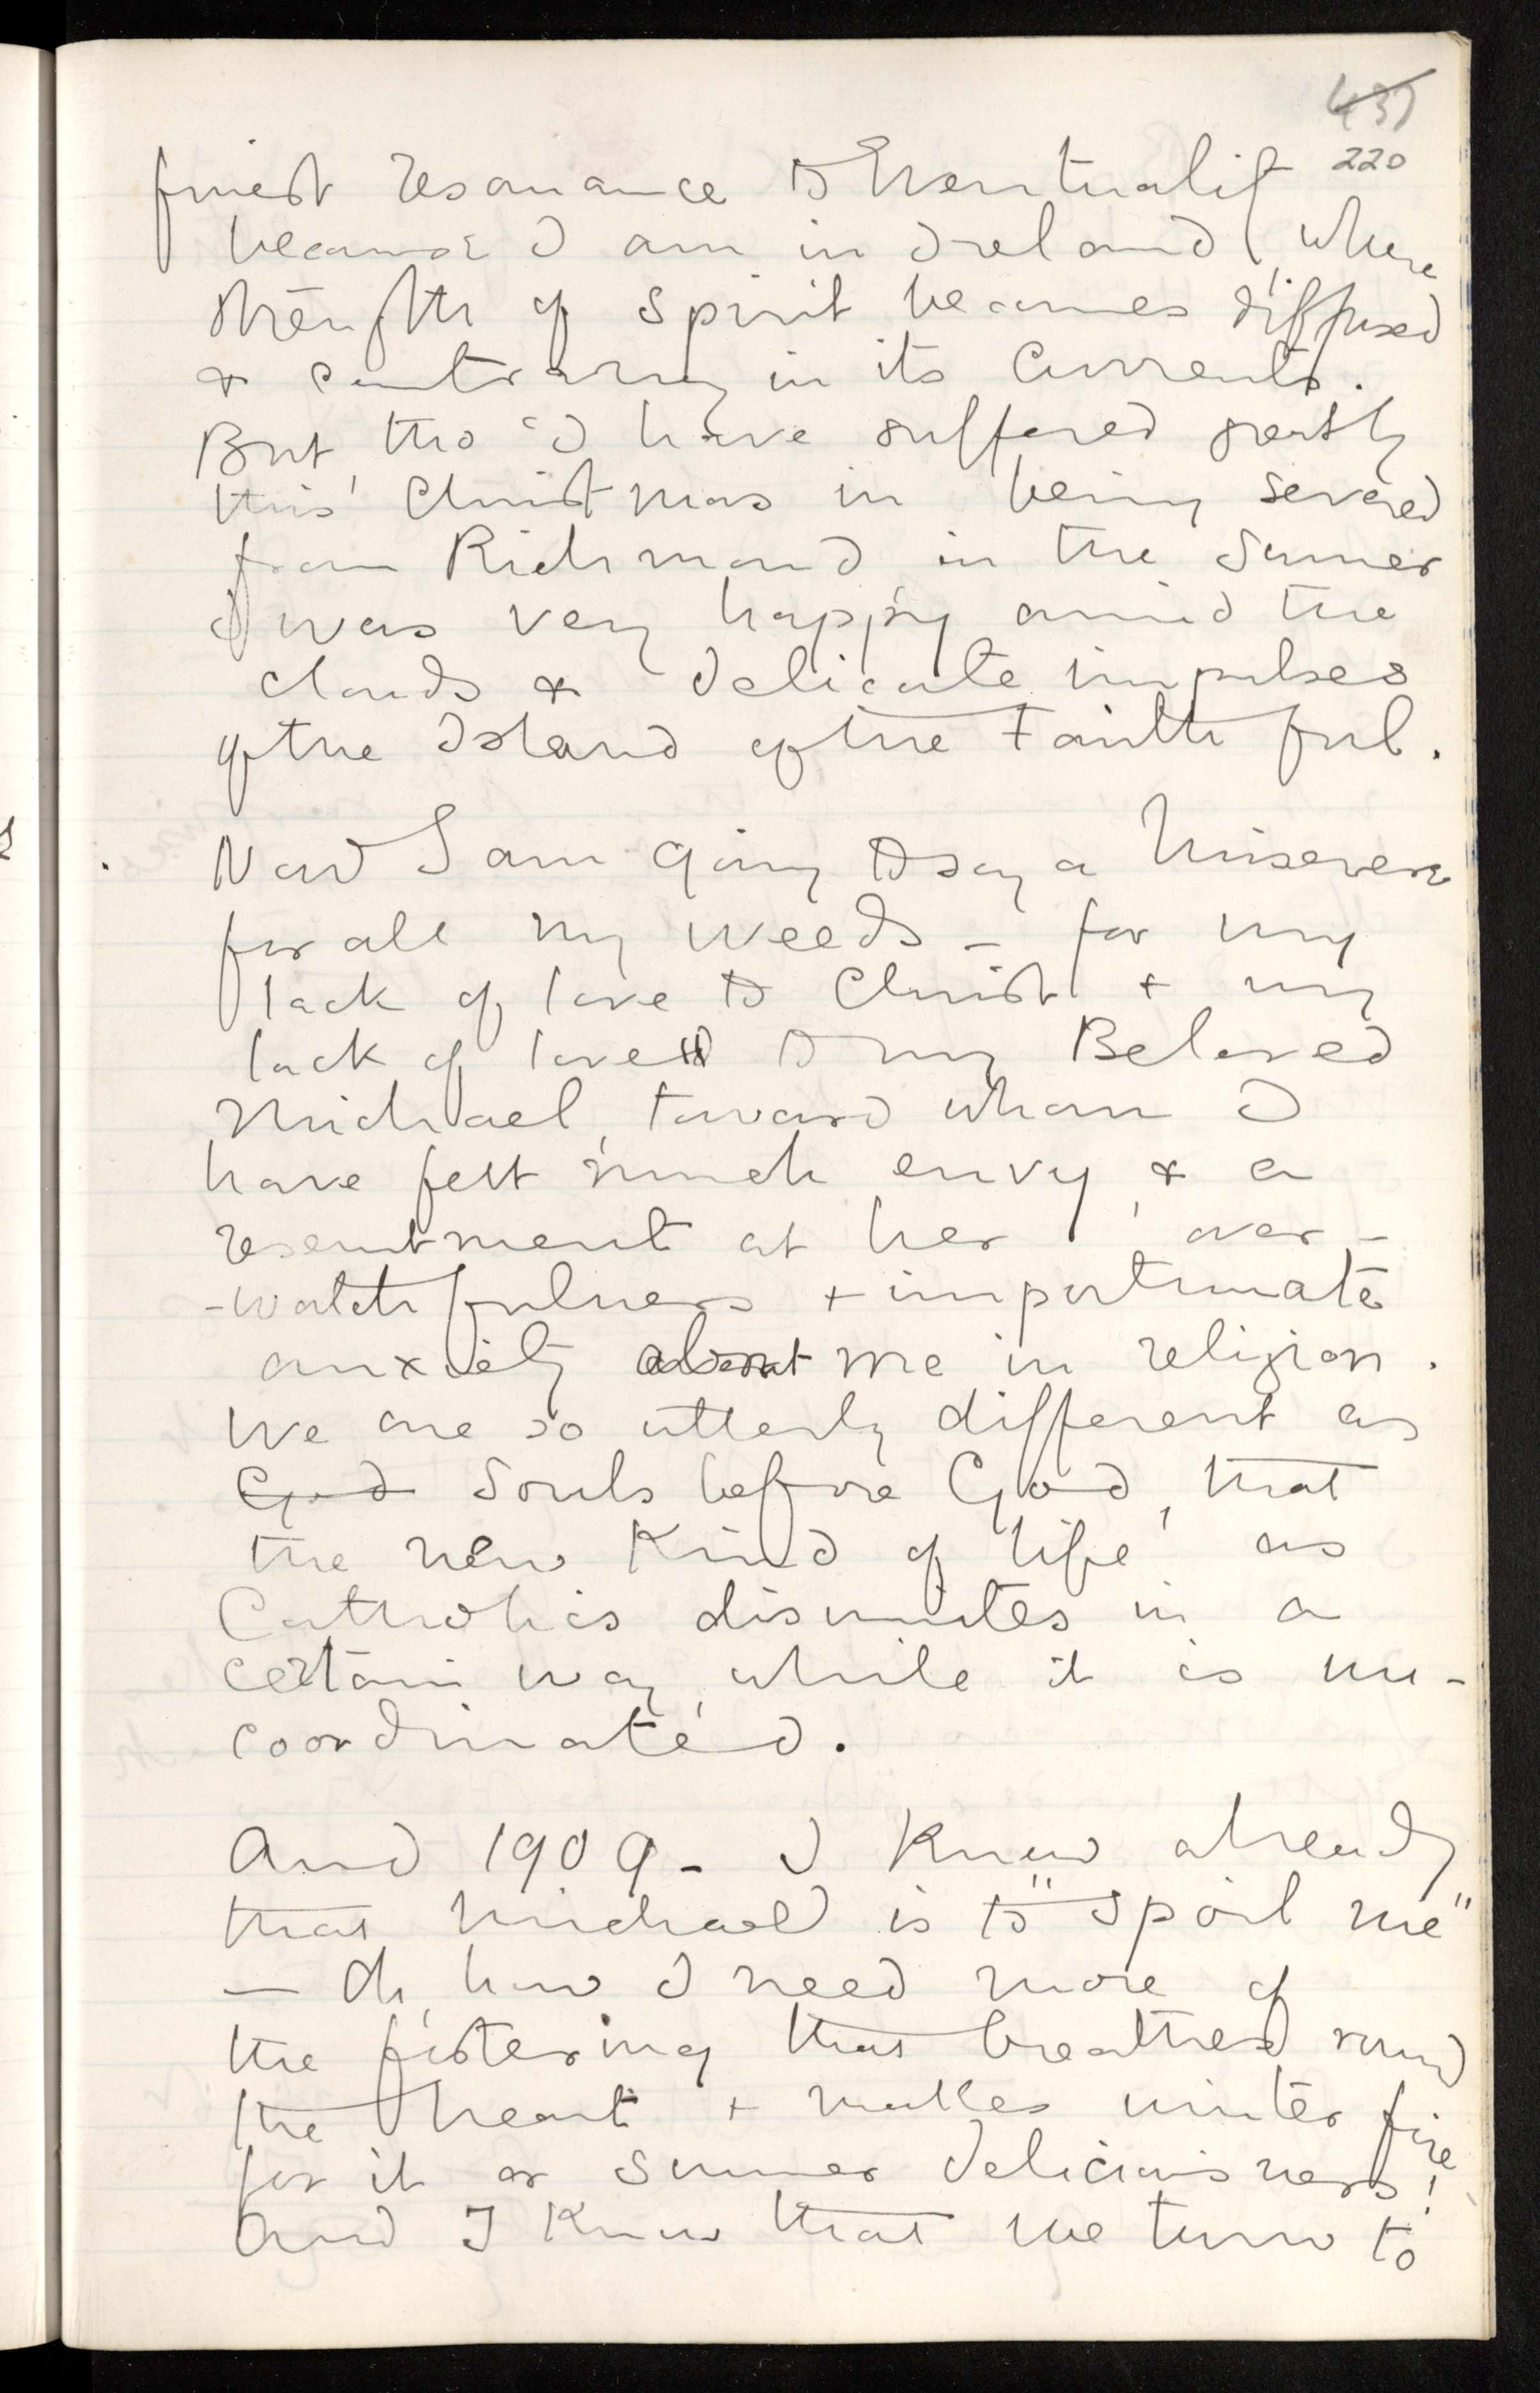 437
220
finest resonance to Eventualit
because I am in Ireland, where
strength of spirit becomes diffused
& contrary in its currents.
But tho' I have suffered greatly
this Christmas in being severed
from Richmond, in the Summer
I was very happy amid the
clouds & delicate impulses
of the Island of the Faithful.
Now I am going to say a Miserere
for all my weeds – for my
lack of love to Christ & my
lack of love to my Beloved
Michael, toward whom I
have felt much envy, & a
resentment at her over-
-watchfulness & importunate
anxiety about me in religion.
We are so utterly different as
God Souls before God, that
the new kind of life as
Catholics disunites in a
certain way, while it is un-
coordinated.
And 1909 – I know already
that Michael is to "spoil me"
— Oh, how I need more of
the fostering that breathes round
the heart & makes winter fire
for it or summer deliciousness!
And I know that we turn to